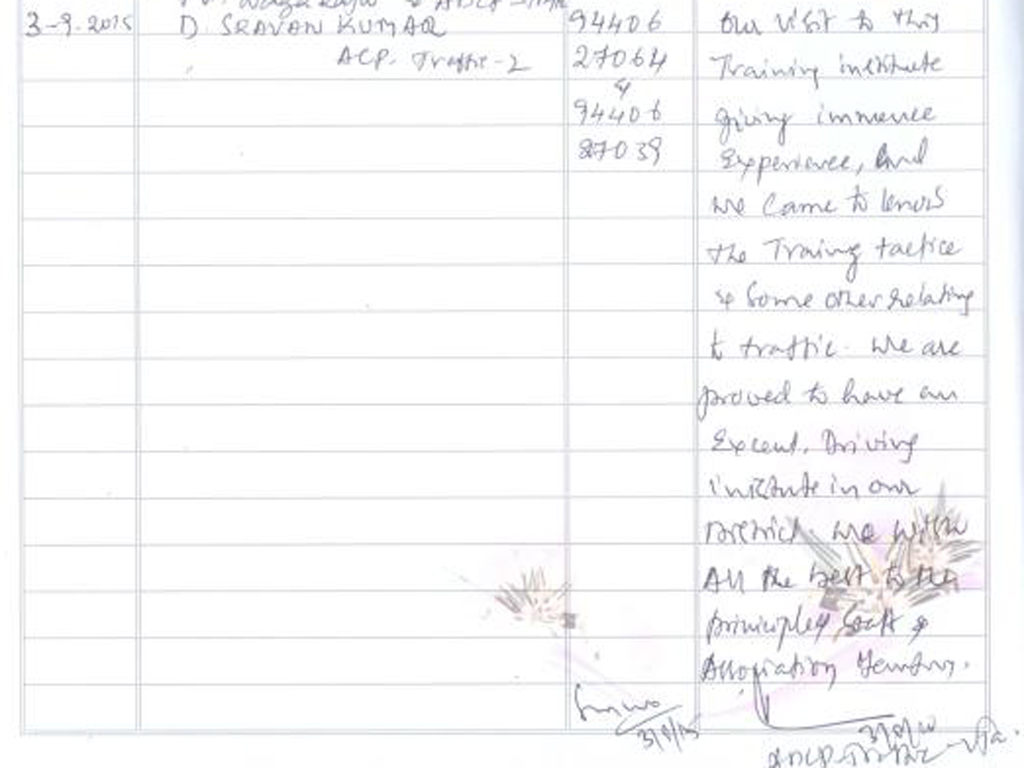 3-9-2015 D. SRAVAN KUMAR 94406 Our visit to this
ACP. Traffic-2 27064 Training institute
&
94406 giving immence
27039 Experience, and
we Came to know
the Traing tactice
& Some other relating
to traffic. We are
proved to have an
Excent. Driving
institute in our
District. We wish
All the best to the
principles Staff &
Association
3/9/15